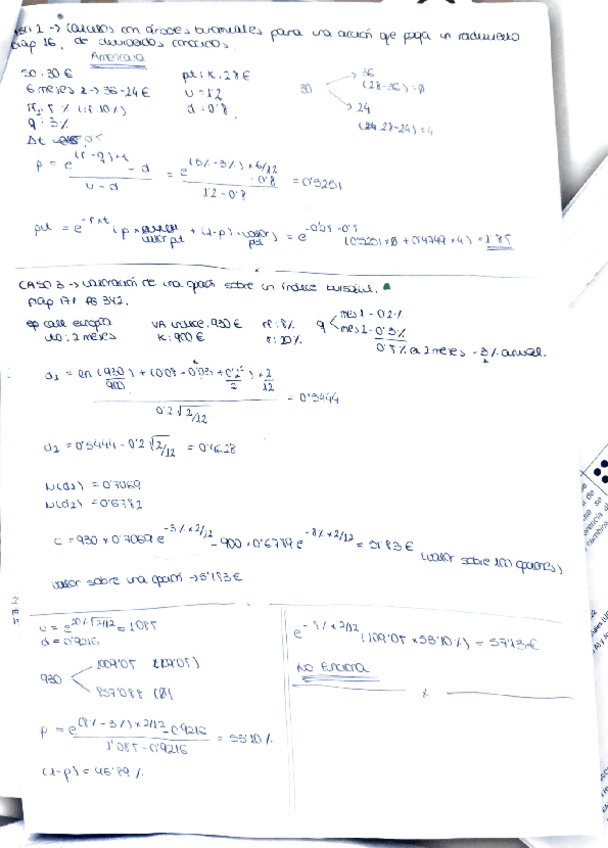 2 → Cálculos con árboles binomiales para una acción que paga un rendimiento
cap 16. de dividendos conocidos.
Americana
S0: 30 €
put: K: 28 €
6 meses 2 → 36 - 24 €
u = 1'2
rf: 5 %
d = 0'8
q: 3%
Δt
30
36
(28-36) = 0
24
28-24) = 4
p = e^(r-q)×t - d / u - d = e^(5%-3%)×6/12 - 0'8 / 1'2 - 0'8 = 0'5251
put = e^-r×t (p × valor put + (1-p) · valor put) = e^-0'05·0'5 (0'5251 × 0 + 0'4749 × 4) = 1'85
CASO 3 → valoración de una opción sobre un índice bursátil.
cap 17 / PG 342.
ep call europea
VA índice: 930 €
rf: 8%
q
mes 1 - 0'2 %
mes 2 - 0'3%
vto: 2 meses
K: 900 €
20%
0'5% a 2 meses - 3% anual.
d1 = ln (930/900) + (0'08 - 0'03 + 0'2²/2) × 2/12 / 0'2 √2/12 = 0'5444
d2 = 0'5444 - 0'2 √2/12 = 0'4628
N(d1) = 0'7069
N(d2) = 0'6782
C = 930 × 0'7069 e^-3% × 2/12 - 900 · 0'6782 e^-8% × 2/12 = 51'83 € (valor sobre 100 opciones)
valor sobre una opción → 5'183 €
u = e^20%·√2/12 = 1'085
d = 0'9216
930
1009'05 (109'05)
857'088 (0)
p = e^(8%-3%) × 2/12 - 0'9216 / 1'085 - 0'9216 = 53'10 %
(1-p) = 46'89 %
(109'05 × 53'10 %) = 57'13 €
NO